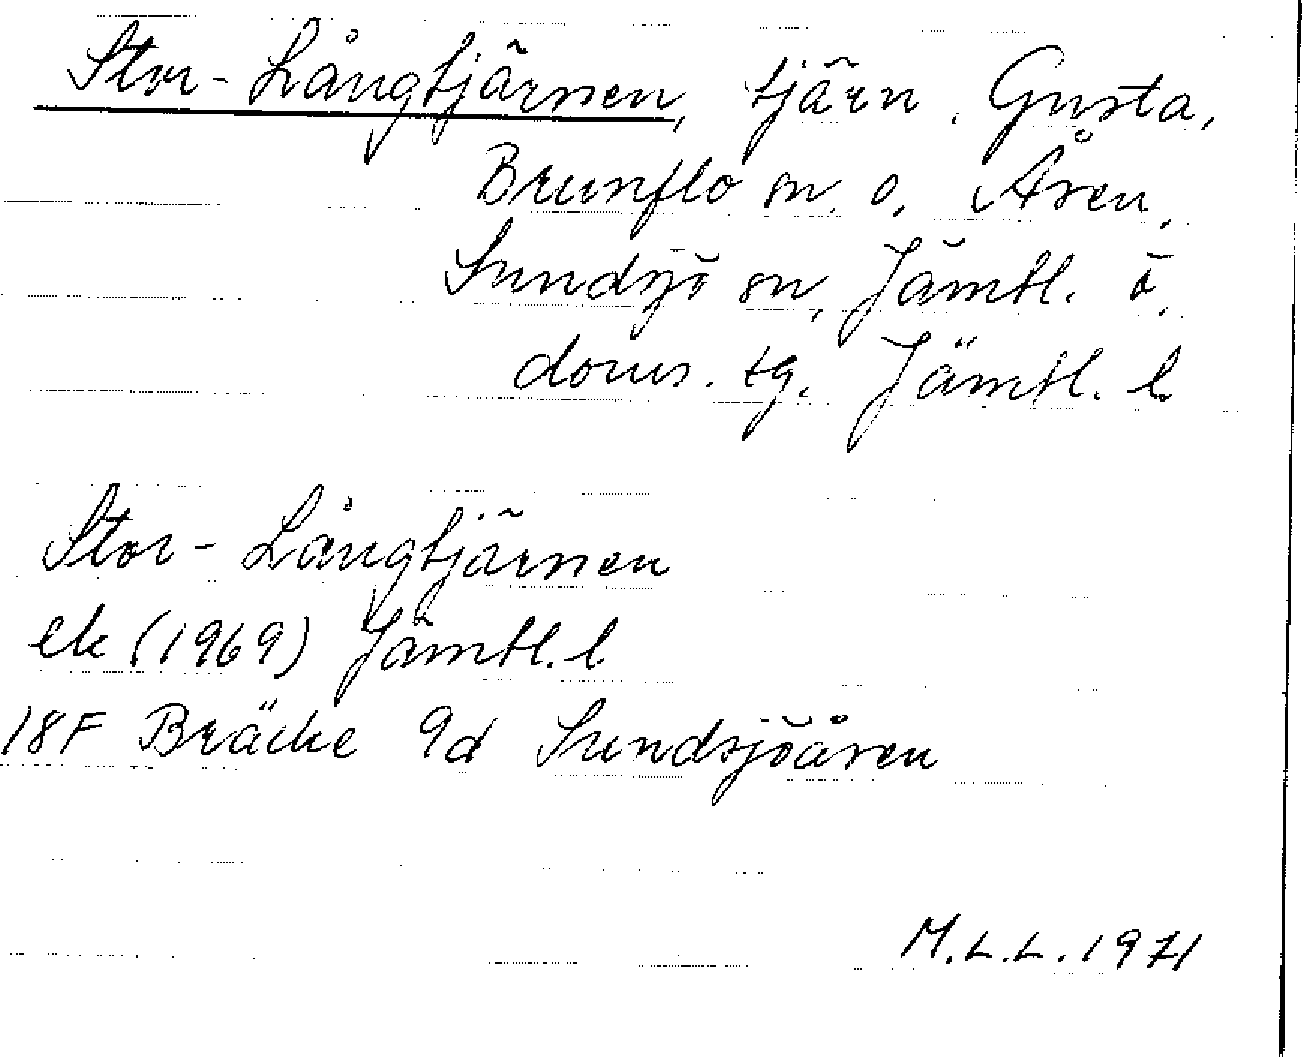 Stor-Långtjärnen, tjärn, Gusta,
Brunflo sn, o. Åsen,
Sundsjö sn, Jämtl. ö.
doms. tg. Jämtl. l.
Stor-Långtjärnen
ek (1969) Jämtl. l
18F Bräcke 9d Sundsjöåsen
M.L.L. 1971